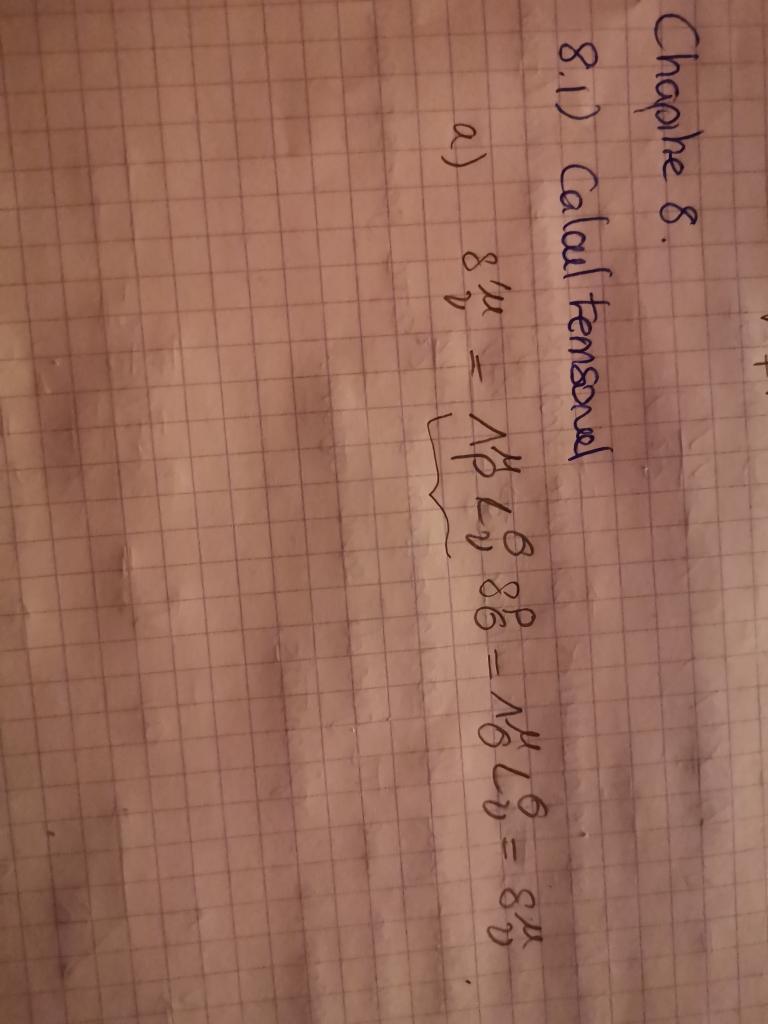 Chapitre 8.
8.1) Calcul tensoriel
a) δ'^μ_ν = Λ^μ_ρ L^σ_ν δ^ρ_σ = Λ^μ_σ L^σ_ν = δ^μ_ν